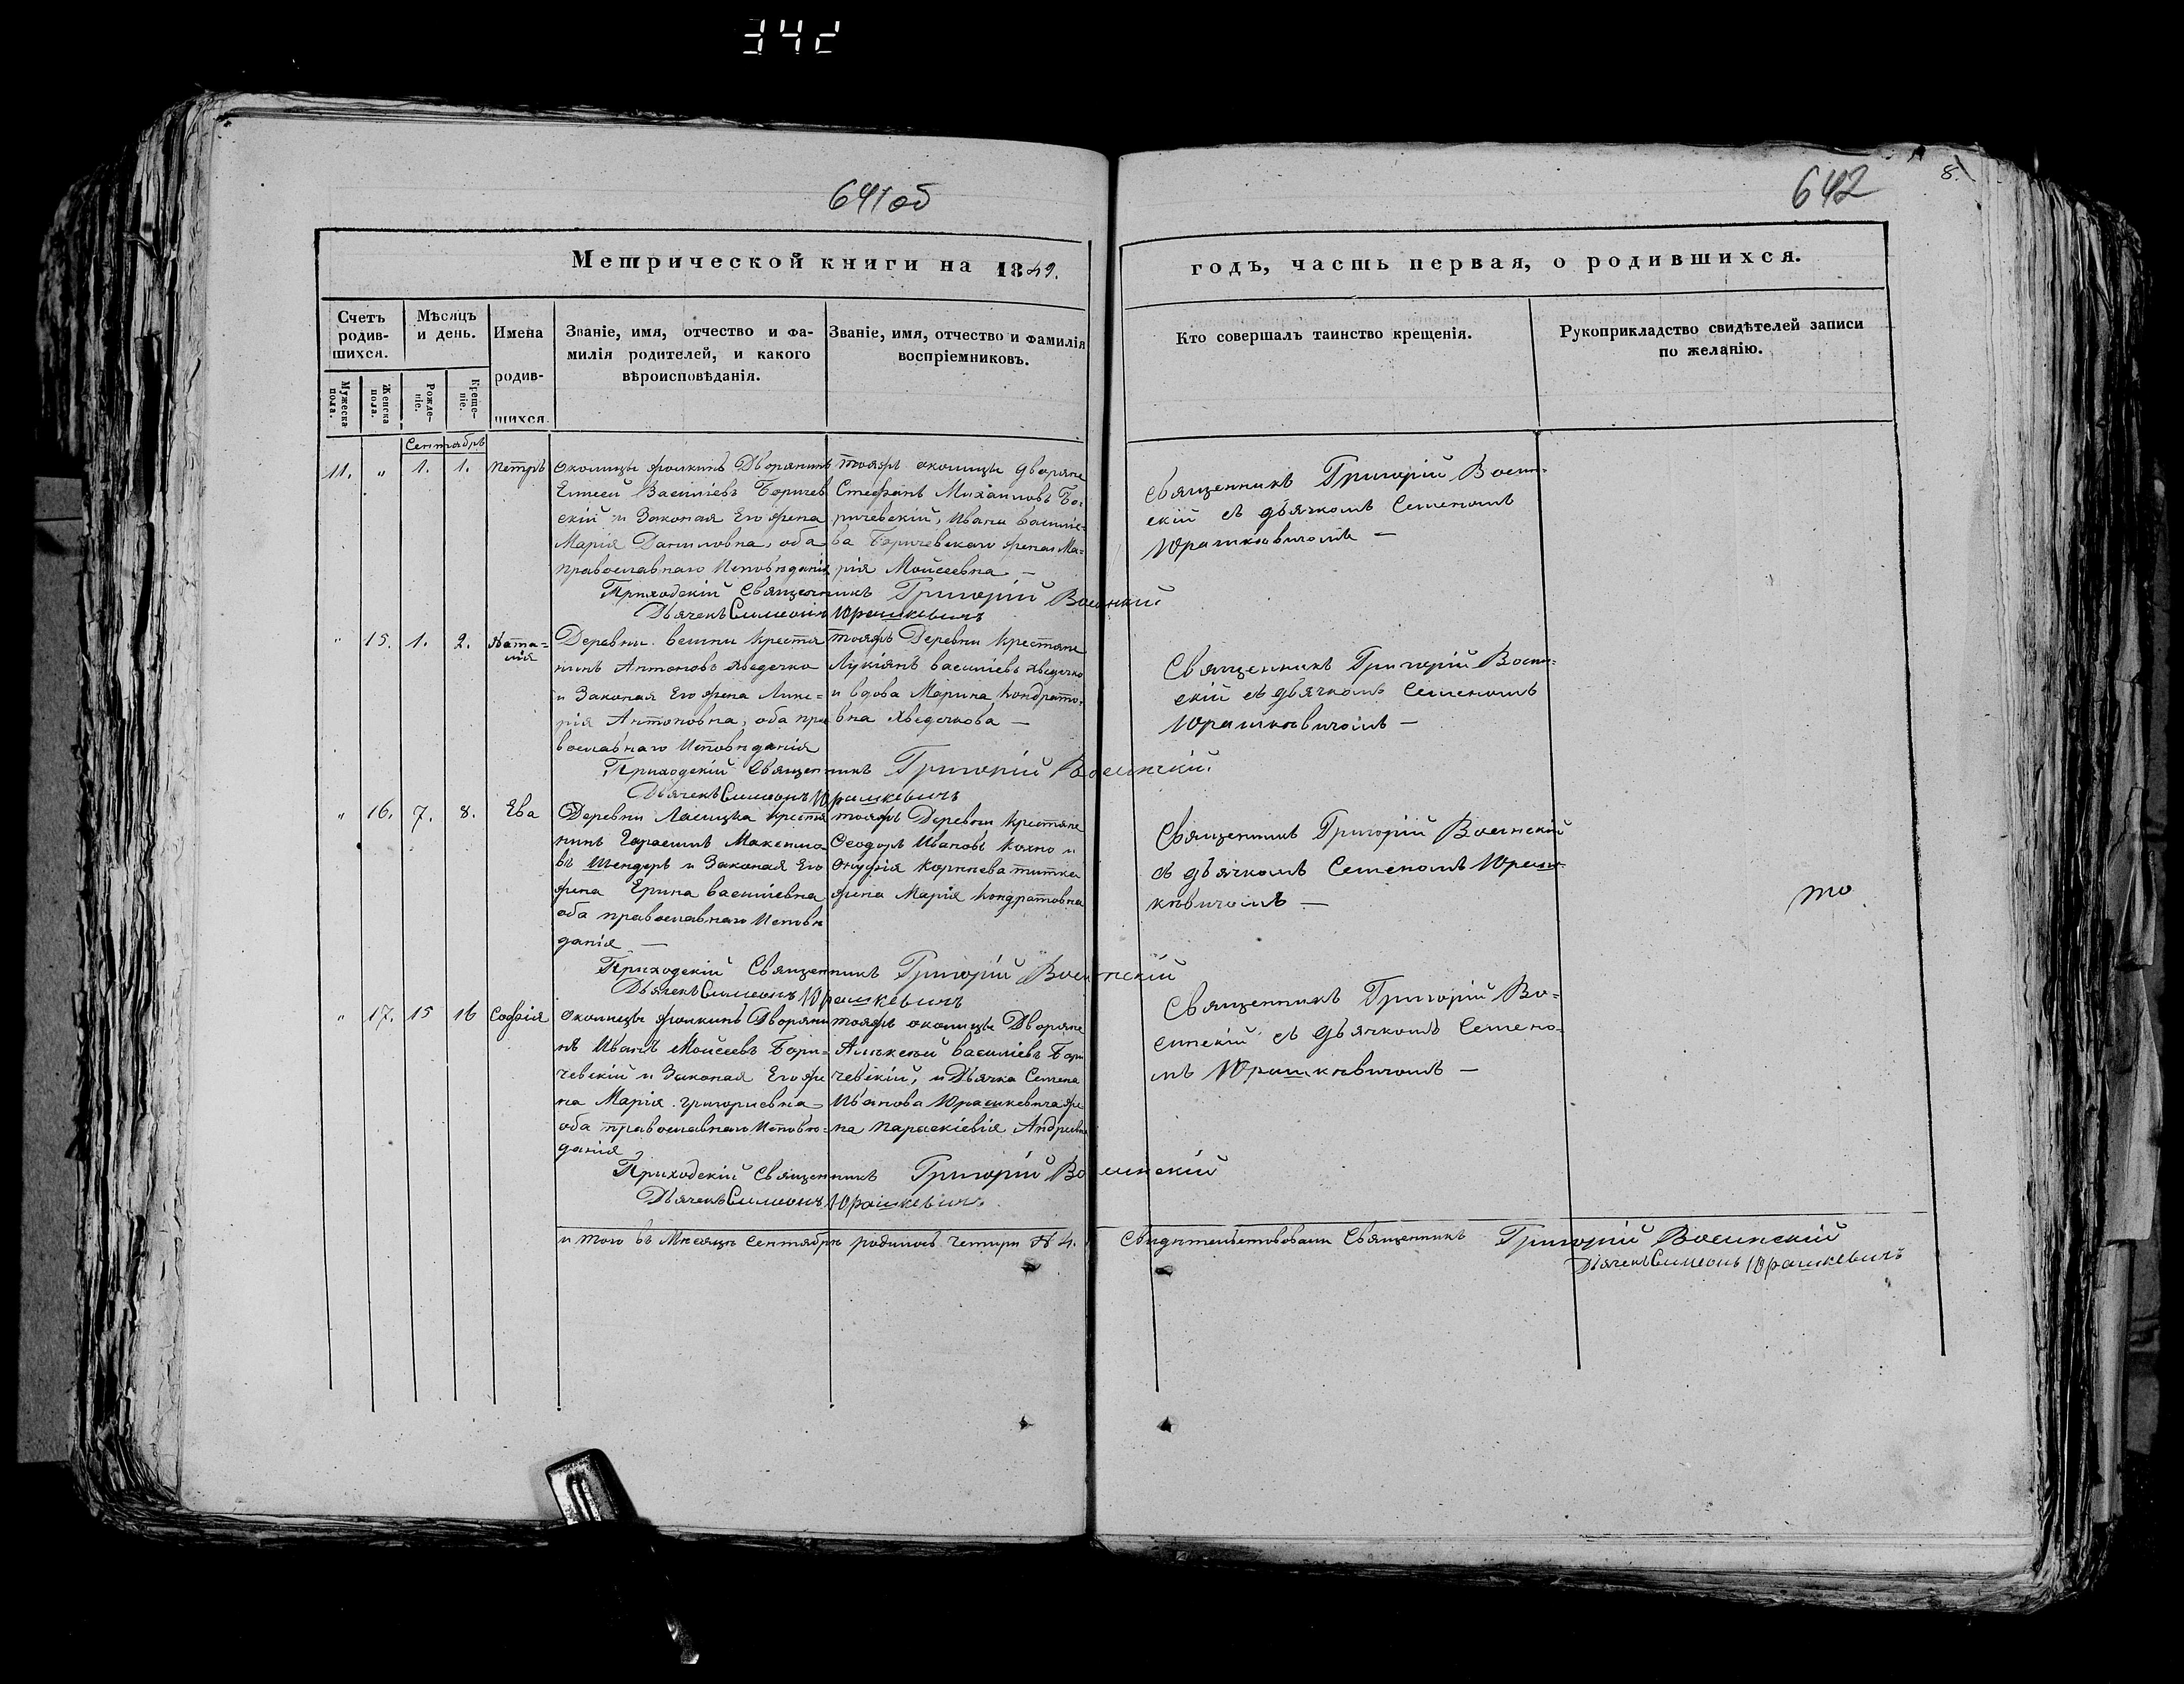 342
641 об
642
8.
Метрической книги на 1849.
годъ, часть первая, о родившихся.
Счетъ родив-шихся.
Мѣсяцъ и день.
Имена родив-шихся.
Званіе, имя, отчество и фа-
милія родителей, и какого
вѣроисповѣданія.
Званіе, имя, отчество и фамилія
воспріемниковъ.
Кто совершалъ таинство крещенія.
Рукоприкладство свидѣтелей записи
по желанію.
Мужеска пола.
Женска пола.
Рожде-ніе.
Креще-ніе.
Сентябрь
11. „ 1. 1. Петръ
Околицы Дворянинъ
Елисей Василіевъ Боричев
скій и Законая Его жена
Марія Даниловна, оба
православнаго Исповѣданія
тояжъ околицы дворяне
Стефанъ Михаиловъ Бо-
ричевскій, Ивана Василіе-
ва Боричевскаго жена Ма-
рія Моисеевна —
Священникъ Григорій Воен-
скій съ дьячкомъ Семеномъ
Юрашкѣвичомъ —
Приходскій Священникъ Григорій
Дьячекъ Симеонъ Юрашкевичъ
„ 15. 1. 2. Ната-
лія
Деревни Крестя
нинъ Антоновъ Хведечко
и Законая Его жена Лике-
рія Антоновна, оба пра
вославнаго Исповѣданія
тояжъ Деревни Крестяне
Лукіянъ Василіевъ Хведечко
и вдова Марина Кондрато-
вна Хведечкова —
Священникъ Григорій Воен-
скій съ дьячкомъ Семеномъ
Юрашкѣвичомъ —
Приходскій Священникъ Григорій
Дьячекъ Симеонъ Юрашкевичъ
„ 16. 7. 8. Ева
Деревни Ласицка Крестя
нинъ Гарасимъ Максимо
въ Шендеръ и Законая Его
жена Ерина Василіевна
оба православнаго Исповѣ
данія —
тояжъ Деревни Крестяне
Феодоръ Ивановъ Кохно и
Онуфрія Корнѣева
жена Марія Кондратовна
Священникъ Григорій
съ дьячкомъ Семеномъ Юраш-
кѣвичомъ —
то
Приходскій Священникъ Григорій
Дьячекъ Симеонъ Юрашкевичъ
„ 17. 15 16 Софія
Околицы Дворяни
нъ Иванъ Моисеевъ Бори-
чевскій и Законая Его же
на Марія Григориевна
оба православнаго Исповѣ-
данія
тояжъ околицы Дворяне
Алѣксѣй Василіевъ Бори
чевскій, и Дьячка Семена
Иванова Юрашкевича же-
на Параскіевія Андреевна
Священникъ Григорій Во-
синскій съ дьячкомъ Семено-
мъ Юрашкѣвичомъ —
Приходскій Священникъ Григорій
Дьячекъ Симеонъ Юрашкевичъ.
и того въ Мѣсяцѣ Сентябрѣ родилось Четыри № 4. Свидѣтельствовали Священникъ Григорій
Дьячекъ Симеонъ Юрашкевичъ